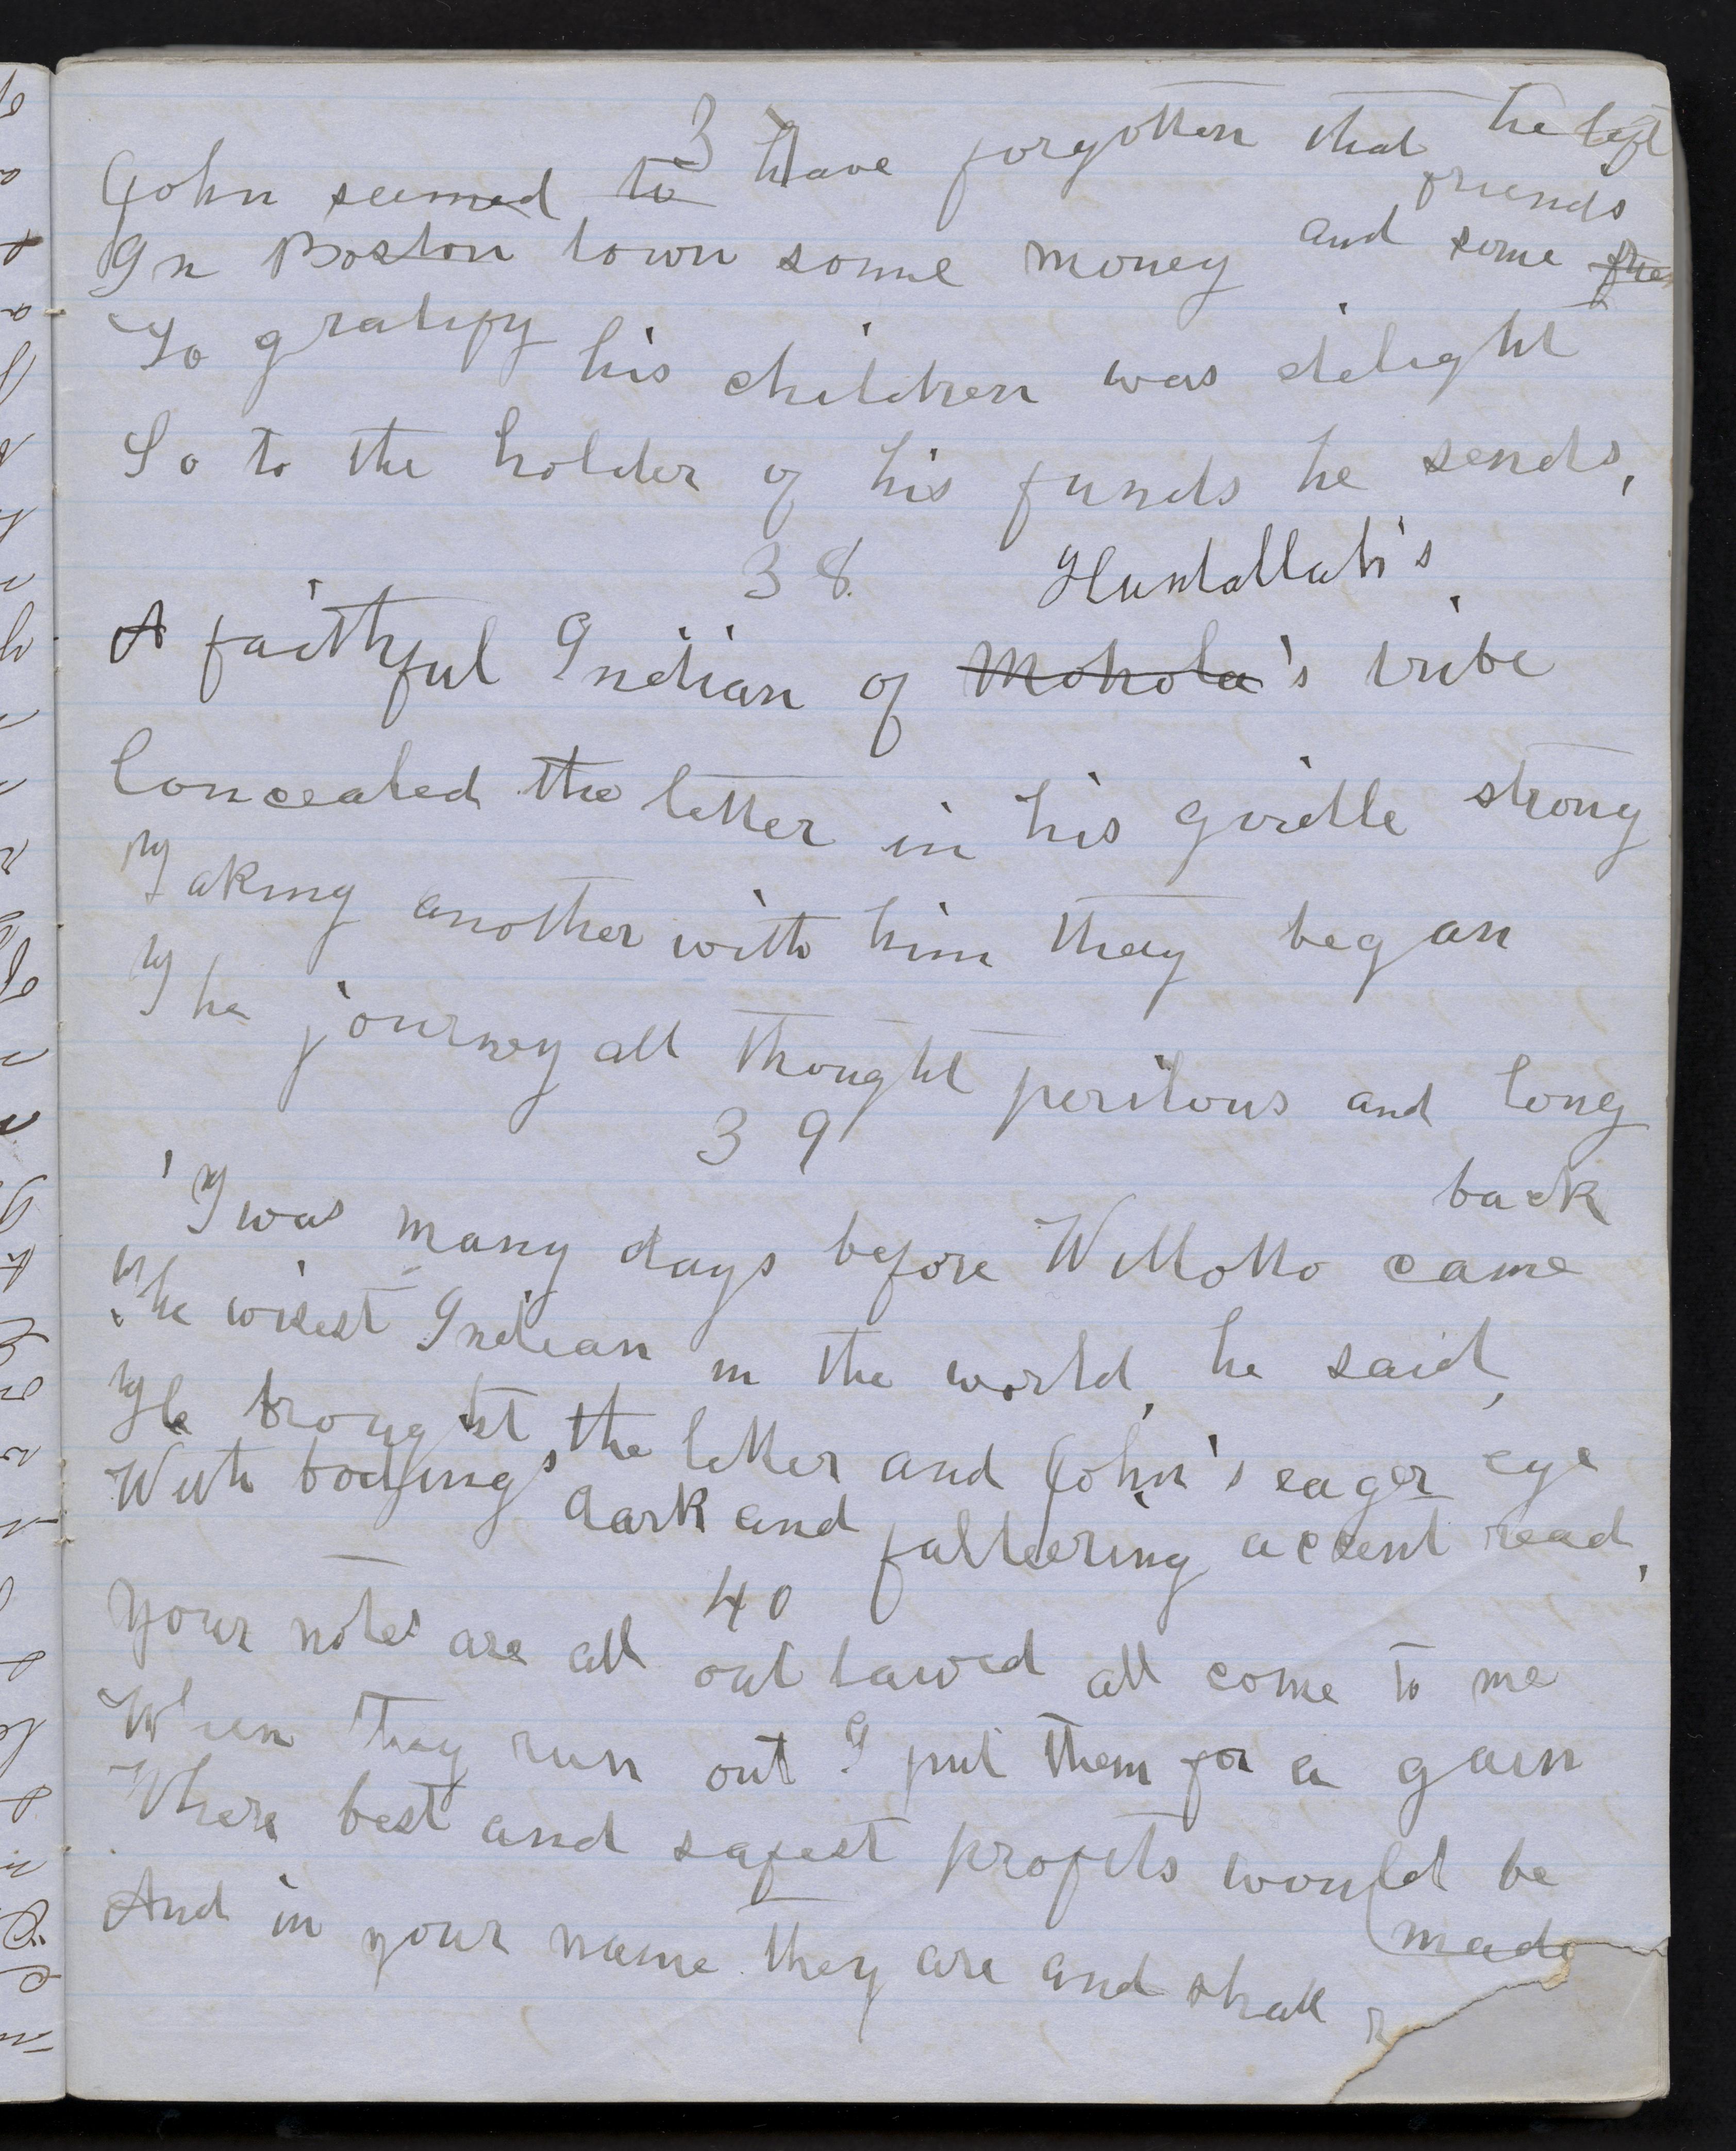 37
John seemed to have forgotten that he left
friends
In Boston town some money and some frie
To gratify his children was delight
So to the holder of his funds he sends,
38. Huntallah's
A faithful Indian of Mohola's tribe
Concealed the letter in his girdle strong
Taking another with him they began
The journey all thought perilous and long
39
back
'Twas many days before Willotto came
The wisest Indian in the world, he said,
He brought the letter and John's eager eye
With bodings dark and falteering accent read,
40
Your notes are all out lawed all come to me
When they run out I put them for a gain
Where best and safest profits would be
made
And in your name they are and shall r